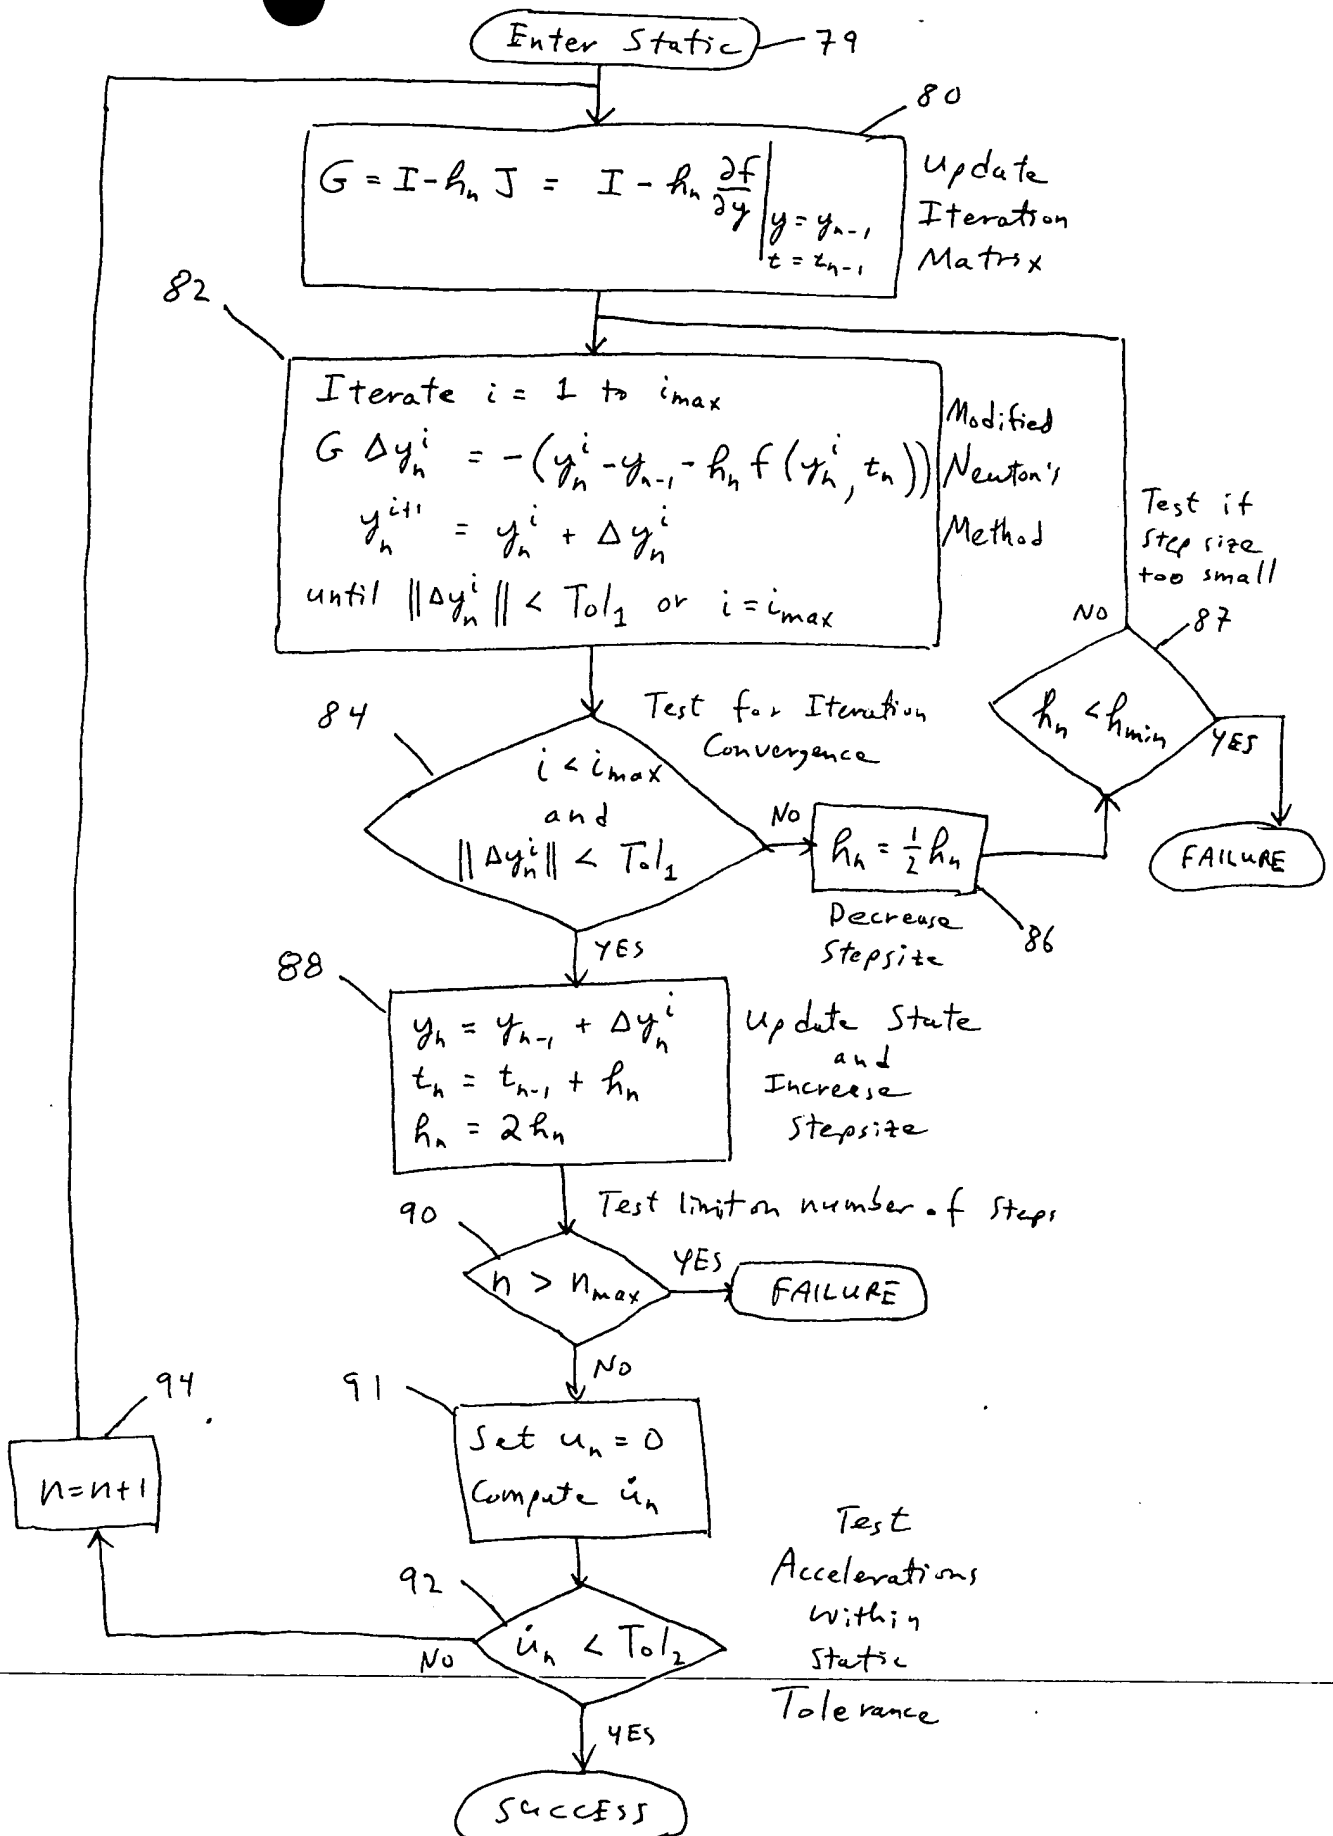 Enter Static
79
80
G = I - hₙ J = I - hₙ ∂f/∂y | y = yₙ₋₁
t = tₙ₋₁
Update
Iteration
Matrix
82
Iterate i = 1 to imax
G Δyₙⁱ = -(yₙⁱ - yₙ₋₁ - hₙ f(yₙⁱ, tₙ))
yₙⁱ⁺¹ = yₙⁱ + Δyₙⁱ
until ||Δyₙⁱ|| < Tol₁ or i = imax
Modified
Newton's
Method
Test if
step size
too small
NO
87
hₙ < hmin
YES
FAILURE
84
Test for Iteration
Convergence
i < imax
and
||Δyₙⁱ|| < Tol₁
NO
hₙ = ½ hₙ
Decrease
Stepsize
86
YES
88
yₙ = yₙ₋₁ + Δyₙⁱ
tₙ = tₙ₋₁ + hₙ
hₙ = 2hₙ
Update State
and
Increase
Stepsize
90
Test limit on number of steps
n > nmax
YES
FAILURE
NO
94
n=n+1
91
Set uₙ = 0
Compute u̇ₙ
92
u̇ₙ < Tol₂
NO
Test
Accelerations
within
static
Tolerance
YES
SUCCESS